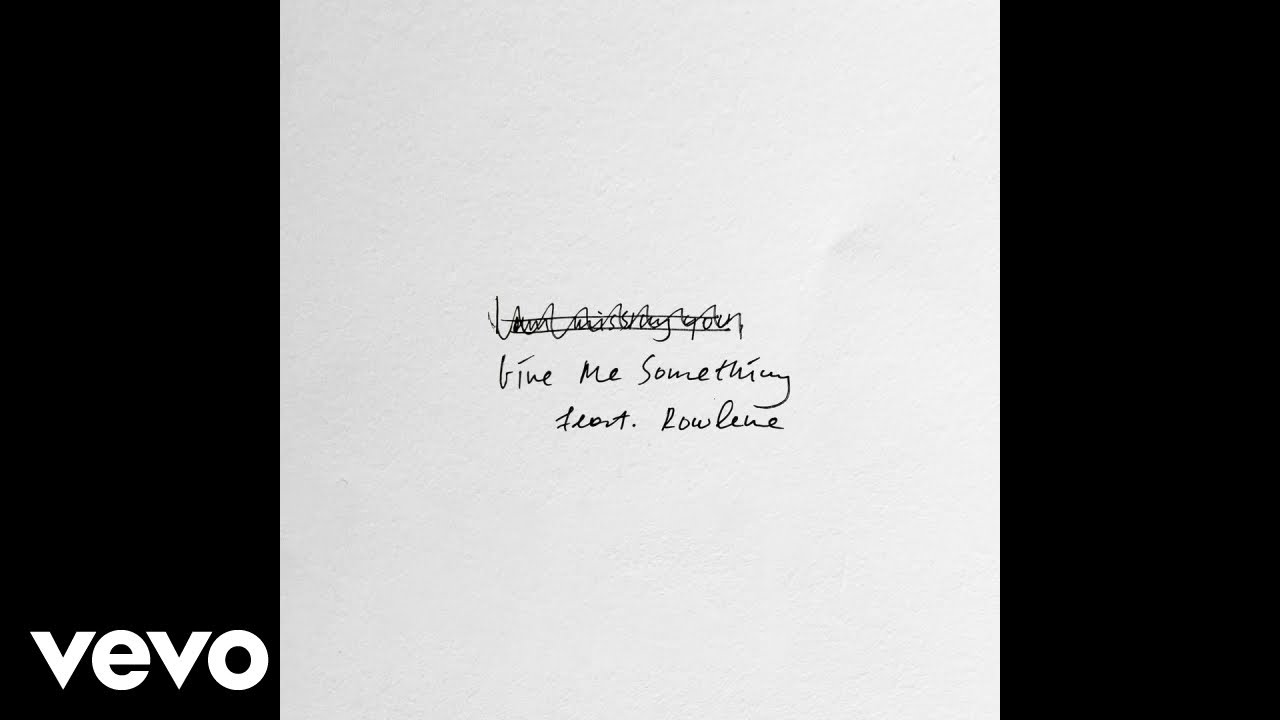 I am missing you,
Give Me Something
feat. Rowlene
vevo